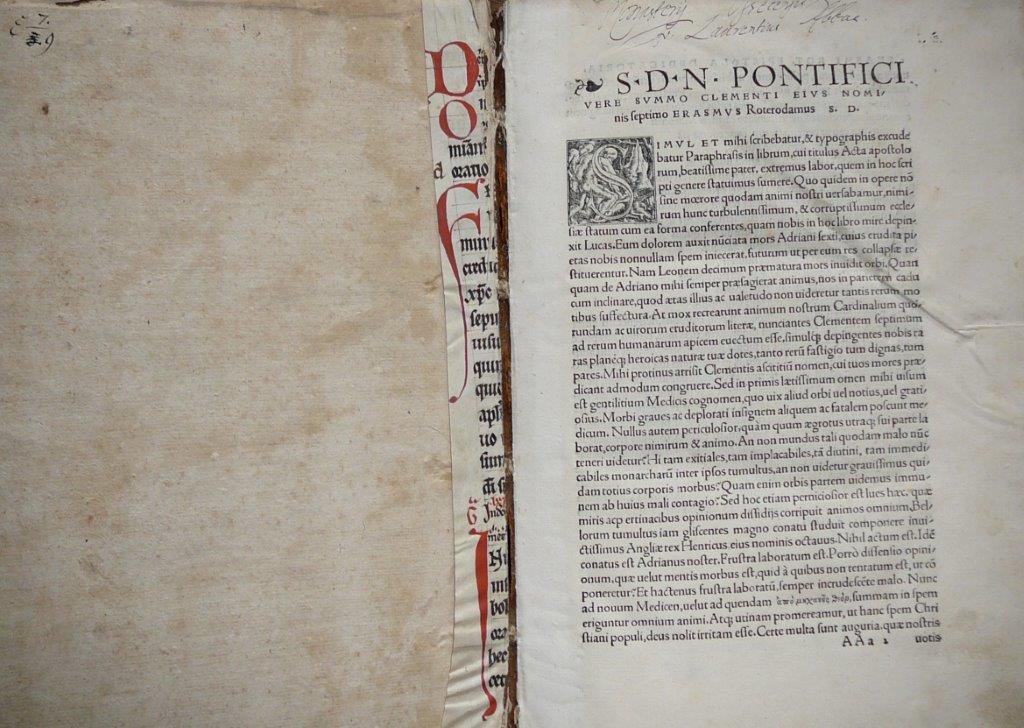 C 7.
29
D
O
mian
oratio
miri
credit
xpe
sepu
uisu
qui
que
apl
uo
sum
di
Ni
bo
bec
Monasterij
Sti Laurentini Abbae.
S·D·N· PONTIFICI
VERE SVMMO CLEMENTI EIVS NOMI/
nis septimo ERASMVS Roterodamus S. D.
SIMVL ET mihi scribebatur, & typographis excude
batur Paraphrasis in librum, cui titulus Acta apostolo
rum, beatissime pater, extremus labor, quem in hoc scri
pti genere statuimus sumere. Quo quidem in opere nō
sine mœrore quodam animi nostri uersabamur, nimi/
rum hunc turbulentissimum, & corruptissimum eccle/
siæ statum cum ea forma conferentes, quam nobis in hoc libro mire depin/
xit Lucas. Eum dolorem auxit nūciata mors Adriani sexti, cuius erudita pi/
etas nobis nonnullam spem iniecerat, futurum ut per eum res collapsæ re/
stituerentur. Nam Leonem decimum præmatura mors inuidit orbi. Quan
quam de Adriano mihi semper præsagierat animus, nos in parietem cadu
cum inclinare, quod ætas illius ac ualetudo non uideretur tantis rerum mo
tibus suffectura. At mox recreatunt animum nostrum Cardinalium quo/
rundam ac uirorum eruditorum literæ, nunciantes Clementem septimum
ad rerum humanarum apicem euectum esse, simulq; depingentes nobis ra
ras planeq; heroicas naturæ tuæ dotes, tanto rerū fastigio tum dignas, tum
pares. Mihi protinus arrisit Clementis ascititiū nomen, cui tuos mores præ/
dicant admodum congruere. Sed in primis lætissimum omen mihi uisum
est gentilitium Medicis cognomen, quo uix aliud orbi uel notius, uel grati/
osius. Morbi graues ac deplorati insignem aliquem ac fatalem poscunt me/
dicum. Nullus autem periculosior, quàm quum ægrotus utraq; sui parte la
borat, corpore nimirum & animo. An non mundus tali quodam malo nūc
teneri uidetur? Hi tam exitiales, tam implacabiles, tā diutini, tam immedi/
cabiles monarcharū inter ipsos tumultus, an non uidetur grauissimus qui/
dam totius corporis morbus? Quam enim orbis partem uidemus immu/
nem ab huius mali contagio? Sed hoc etiam perniciosior est lues hæc, quæ
miris ac pertinacibus opinionum dissidijs corripuit animos omnium. Bel/
lorum tumultus iam gliscentes magno conatu studuit componere inui/
ctissimus Angliæ rex Henricus eius nominis octauus. Nihil actum est. Idē
conatus est Adrianus noster. Frustra laboratum est. Porrò dissensio opini/
onum, quæ uelut mentis morbus est, quid à quibus non tentatum est, ut cō
poneretur? Et hactenus frustra laboratū, semper incrudescēte malo. Nunc
ad nouum Medicen, uelut ad quendam ἀπὸ μηχανῆς θεὸν, summam in spem
eriguntur omnium animi. Atq; utinam promereamur, ut hanc spem Chri
stiani populi, deus nolit irritam esse. Certe multa sunt auguria, quæ nostris
AAa 2 uotis